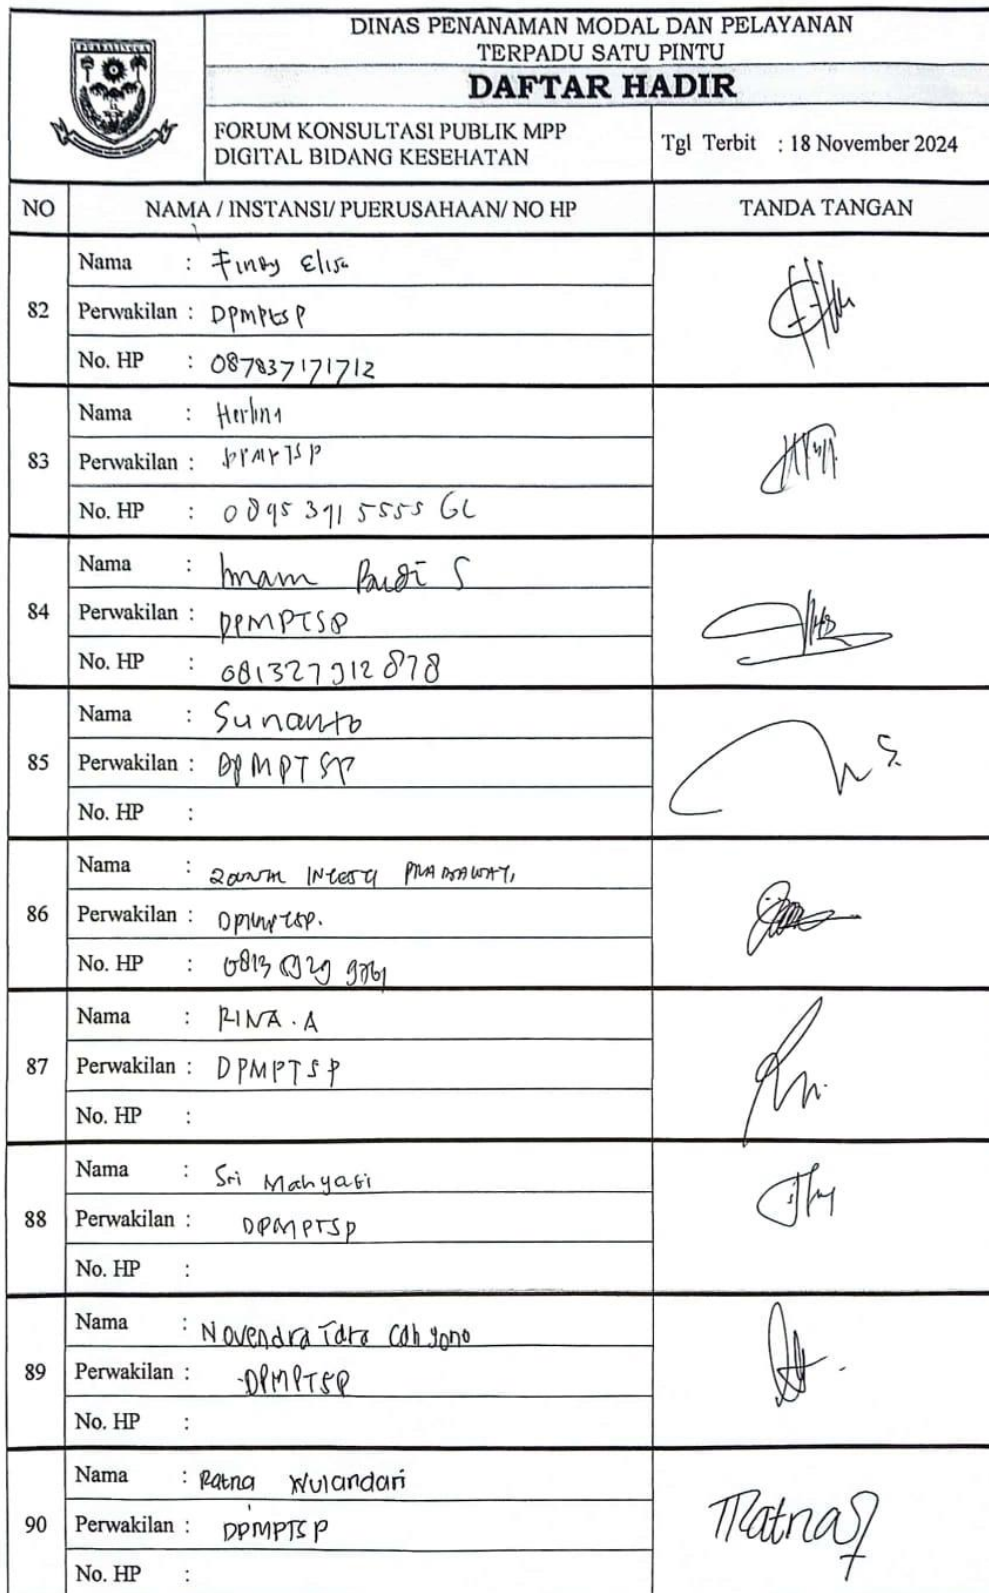 DINAS PENANAMAN MODAL DAN PELAYANAN
TERPADU SATU PINTU
DAFTAR HADIR
FORUM KONSULTASI PUBLIK MPP
DIGITAL BIDANG KESEHATAN
Tgl Terbit : 18 November 2024
NO NAMA / INSTANSI/ PUERUSAHAAN/ NO HP TANDA TANGAN
82
Nama : Findy Elisa
Perwakilan : DPMPtSP
No. HP : 087837171712
83
Nama : Herlina
Perwakilan : DPMPTSP
No. HP : 0895 391 5555
84
Nama : Imam Budi S
Perwakilan : DPMPTSP
No. HP : 081327912878
85
Nama : Sunanto
Perwakilan : DPMPTSP
No. HP :
86
Nama :
Perwakilan : DPMPTSP.
No. HP : 0813
87
Nama : RINA . A
Perwakilan : DPMPTSP
No. HP :
88
Nama : Sri Mahyasi
Perwakilan : DPMPTSP
No. HP :
89
Nama : Novendra Tara Cahyono
Perwakilan : DPMPTSP
No. HP :
90
Nama : Ratna Wulandari
Perwakilan : DPMPTSP
No. HP :
Ratna